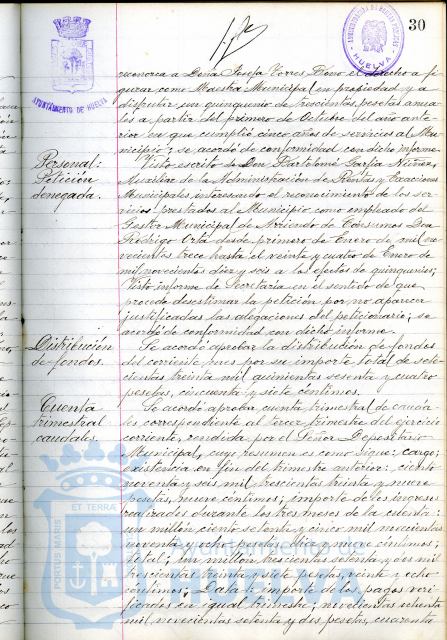 30
AYUNTAMIENTO DE HUELVA
HUELVA
reconozca a Doña Josefa Torres el derecho a fi-
gurar como Maestra Municipal en propiedad y a
disfrutar un quinquenio de trescientas pesetas anua-
les a partir del primero de Octubre del año ante-
rior en que cumplió cinco años de servicios al Mu-
nicipio; se acordó de conformidad con dicho informe.
Personal:
Petición
denegada.
Visto escrito de Don Bartolomé Garfia Núñez,
Auxiliar de la Administración de Rentas y Exacciones
Municipales, interesando el reconocimiento de los ser-
vicios prestados al Municipio como empleado del
Gestor Municipal de Arriendo de Consumos Don
Rodrigo Orta desde primero de Enero de mil no-
vecientos trece hasta el veinte y cuatro de Enero de
mil novecientos diez y seis a los efectos de quinquenios;
Visto informe de Secretaría en el sentido de que
procede desestimar la petición por no aparecer
justificadas las alegaciones del peticionario; se
acordó de conformidad con dicho informe.
Distribución
de fondos.
Se acordó aprobar la distribución de fondos
del corriente mes por su importe total de sete-
cientas treinta mil quinientas sesenta y cuatro
pesetas, cincuenta y siete centimos.
Cuenta
trimestral
caudales.
Se acordó aprobar cuenta trimestral de cauda-
les correspondiente al tercer trimestre del ejercicio
corriente, rendida por el Señor Depositario
Municipal, cuyo resumen es como sigue: cargo;
existencia en fin del trimestre anterior: ciento
noventa y seis mil trescientas treinta y nueve
pesetas, nueve centimos; importe de los ingresos
realizados durante los tres meses de la cuenta:
un millón ciento setenta y cinco mil novecientas
noventa y ocho pesetas diez y nueve centimos;
total; un millón trescientas setenta y dos mil
trescientas treinta y siete pesetas veinte y ocho
centimos; Data: importe de los pagos veri-
ficados en igual trimestre; novecientas ochenta
mil novecientas setenta y dos pesetas, cuarenta
PORTUS MARIS ET TERRAE
Ayuntamiento de
HUELVA